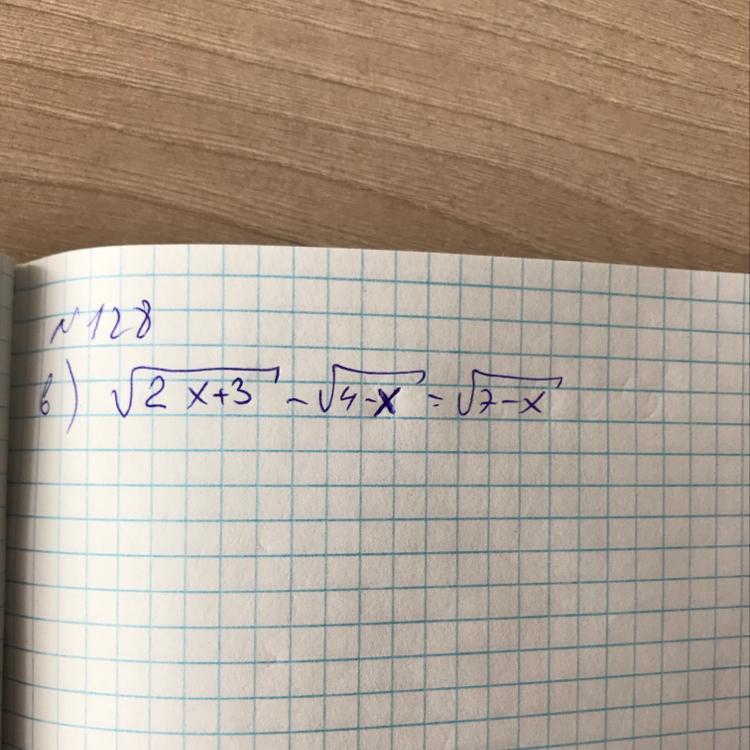 №128
в) √2x+3 - √4-x = √7-x